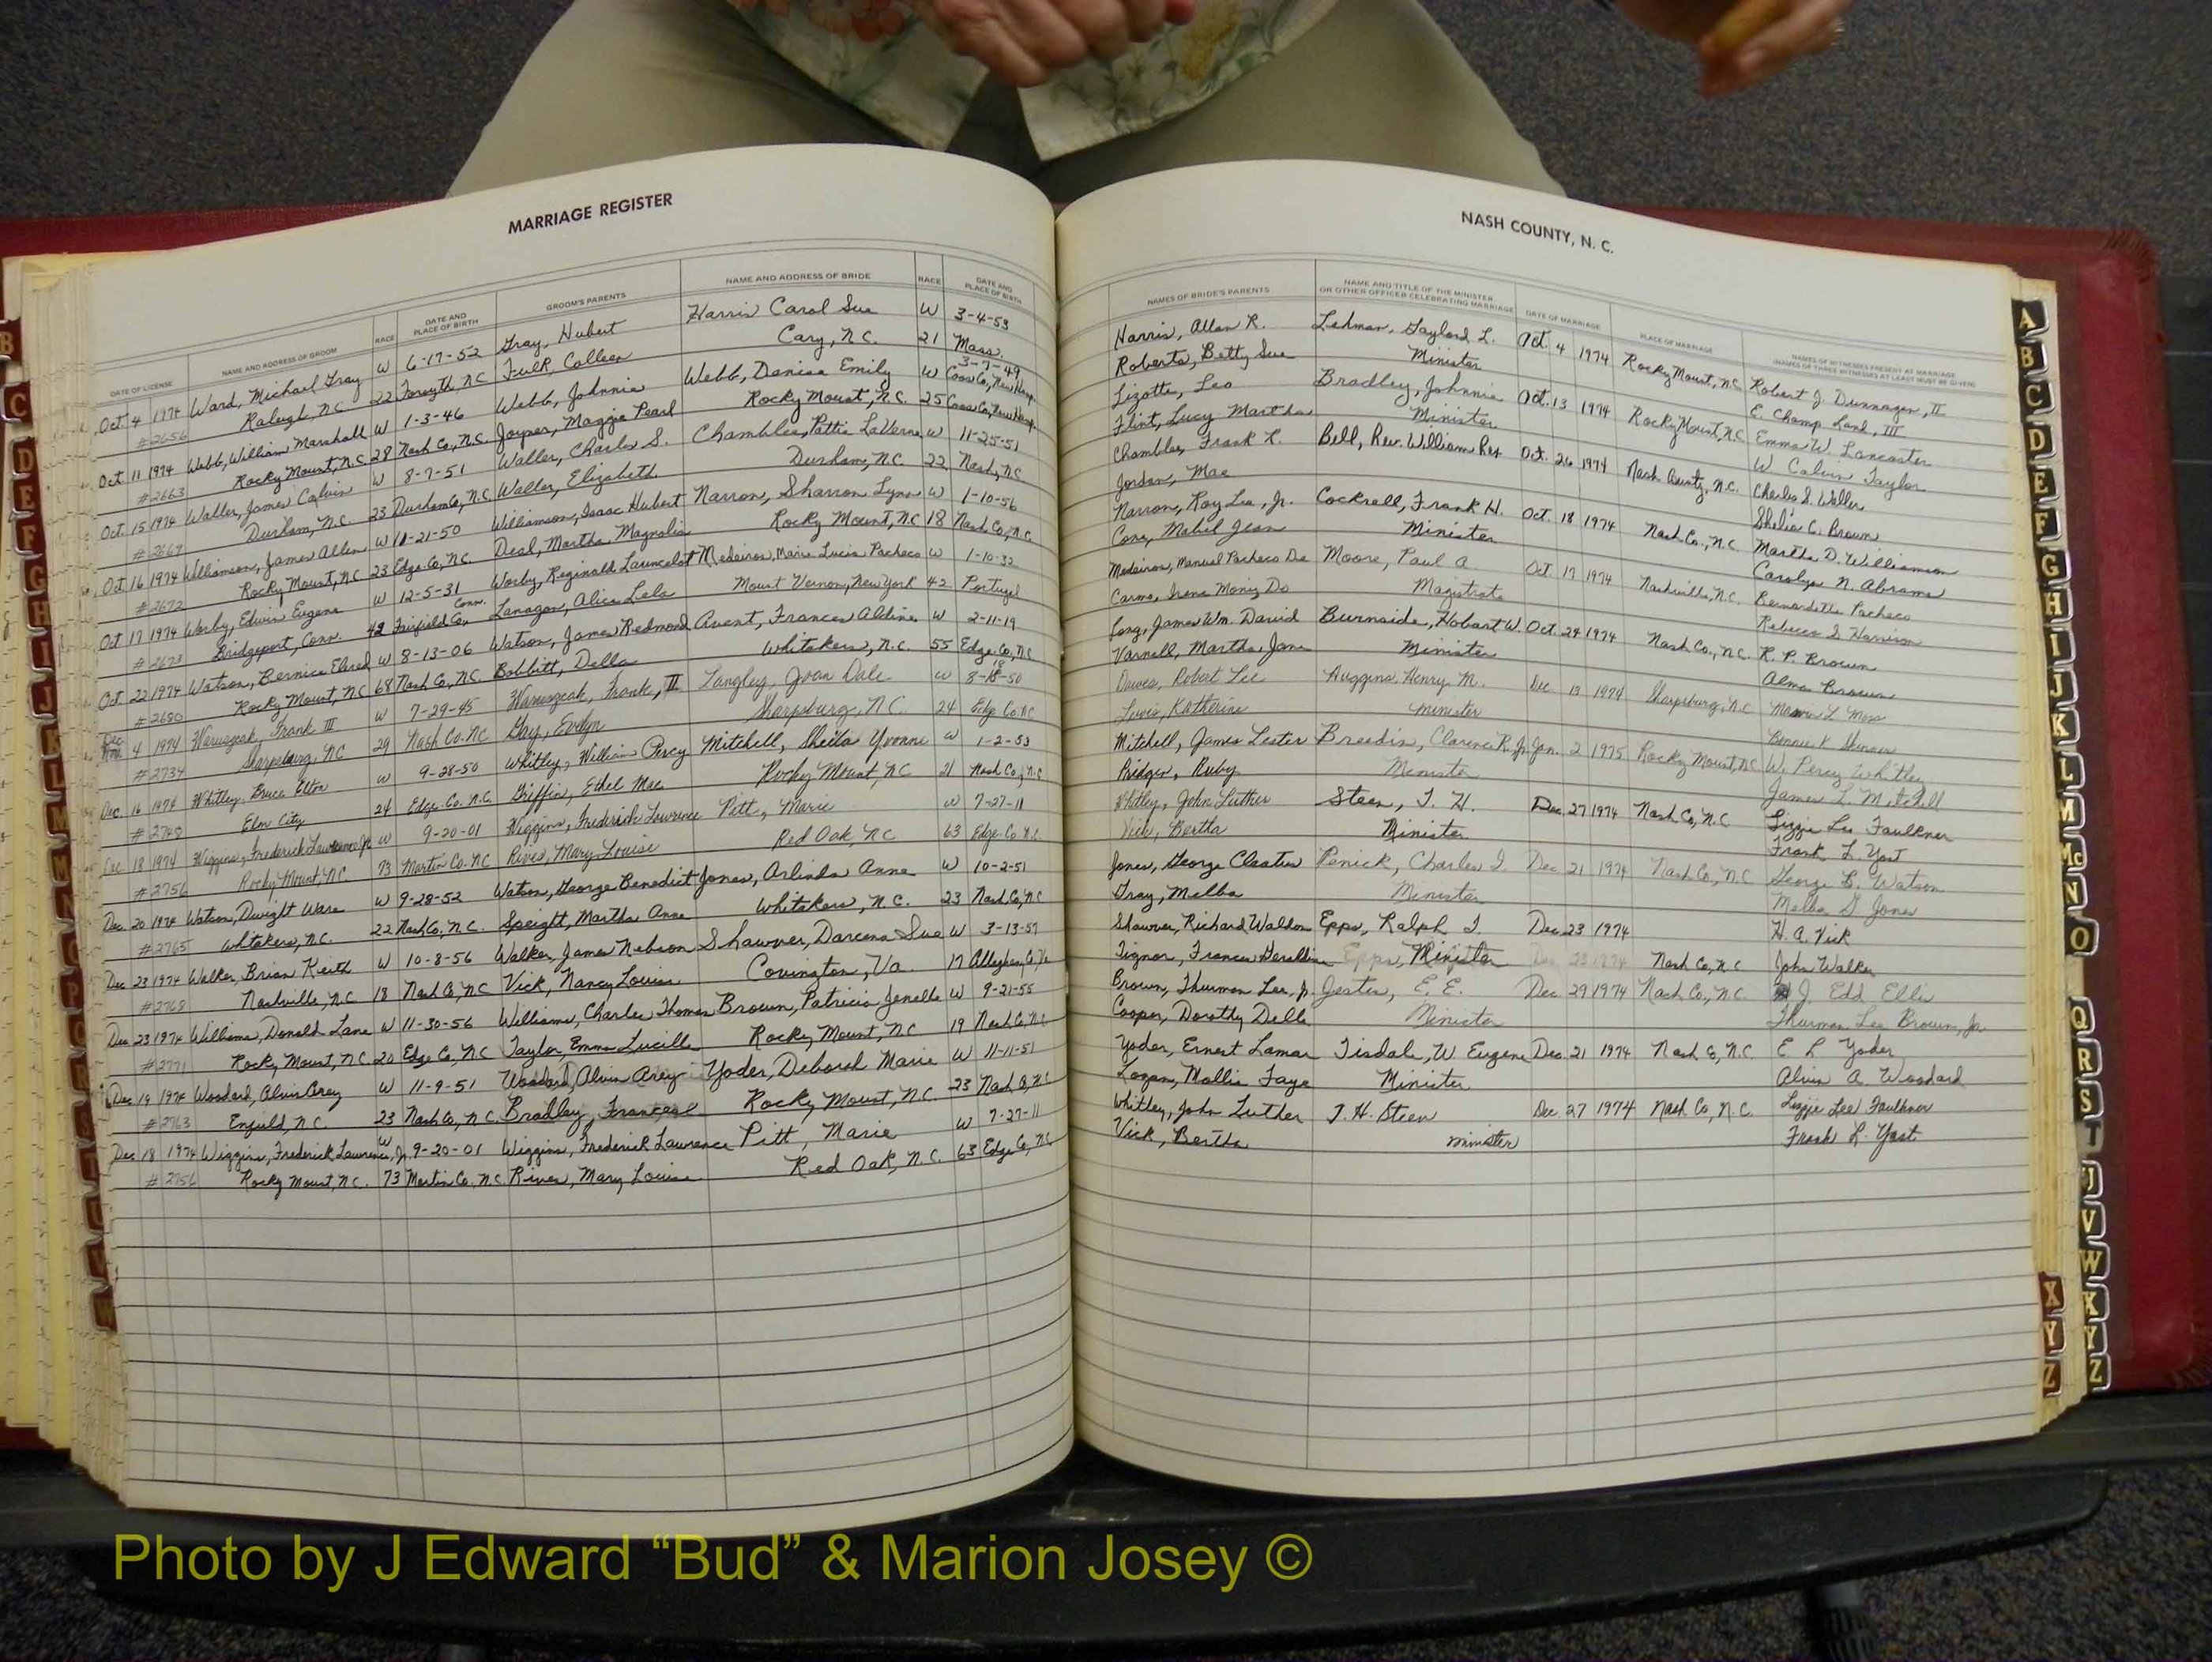 MARRIAGE REGISTER
DATE OF LICENSE NAME AND ADDRESS OF GROOM RACE DATE AND PLACE OF BIRTH GROOM'S PARENTS NAME AND ADDRESS OF BRIDE RACE DATE AND PLACE OF BIRTH
Oct. 4 1974 Ward, Michael Gray W 6-17-52 Gray, Hubert Harris Carol Sue W 3-4-53
#2656 Raleigh, N.C. 22 Forsyth, NC Fulk, Colleen Cary, N.C. 21 Mass.
Oct. 11 1974 Webb, William Marshall W 1-3-46 Webb, Johnnie Webb, Denise Emily W 3-7-49
#2663 Rocky Mount, N.C. 28 Nash Co., N.C. Joyner, Maggie Pearl Rocky Mount, N.C. 25 Coos Co., New Hamp.
Oct. 15 1974 Waller, James Calvin W 8-7-51 Waller, Charles S. Chamblee, Pattie LaVerne W 11-25-51
#2669 Durham, N.C. 23 Durham Co., N.C. Waller, Elizabeth Durham, N.C. 22 Nash, N.C.
Oct. 16 1974 Williamson, James Allen W 11-21-50 Williamson, Isaac Hubert Narron, Sharron Lynn W 1-10-56
#2672 Rocky Mount, N.C. 23 Edge. Co., N.C. Deal, Martha Magnolia Rocky Mount, N.C. 18 Nash Co., N.C.
Oct. 17 1974 Worby, Edwin Eugene W 12-5-31 Worby, Reginald Launcelot Medeiros, Maria Lucia Pacheco W 1-10-32
#2673 Bridgeport, Conn. 42 Fairfield Co., Conn. Lanagan, Alice Lela Mount Vernon, New York 42 Portugal
Oct. 22 1974 Watson, Bernice Elred W 8-13-06 Watson, James Redmond Avent, Frances Aldine W 2-11-19
#2680 Rocky Mount, N.C. 68 Nash Co., N.C. Bobbitt, Della Whitakers, N.C. 55 Edge. Co., N.C.
Dec 4 1974 Waruszeak, Frank III W 7-29-45 Waruszeak, Frank, II Langley, Joan Dale W 8-18-50
#2734 Sharpsburg, NC 29 Nash Co. NC Gay, Evelyn Sharpsburg, N.C. 24 Edge Co. NC
Dec. 16 1974 Whitley, Bruce Elton W 9-28-50 Whitley, William Percy Mitchell, Sheila Yvonne W 1-2-53
#2748 Elm City 24 Edge. Co. N.C. Griffin, Ethel Mae Rocky Mount, NC 21 Nash Co., N.C.
Dec 18 1974 Wiggins, Frederick Lawrence Jr W 9-20-01 Wiggins, Frederick Lawrence Pitt, Marie W 7-27-11
#2756 Rocky Mount, N.C. 73 Martin Co. NC Rives, Mary Louise Red Oak, NC 63 Edge. Co N.C.
Dec. 20 1974 Watson, Dwight Ware W 9-28-52 Watson, George Benedict Jones, Arlinda Anne W 10-2-51
#2765 Whitakers, N.C. 22 Nash Co., N.C. Speight, Martha Anne Whitakers, N.C. 23 Nash Co., N.C.
Dec 23 1974 Walker, Brian Keith W 10-8-56 Walker, James Nelson Shawver, Darcena Sue W 3-13-57
#2768 Nashville, N.C. 18 Nash Co, NC Vick, Nancy Louise Covington, Va. 17 Alleghany Co, Va
Dec 23 1974 Williams, Donald Lane W 11-30-56 Williams, Charles Thomas Brown, Patricia Jenelle W 9-21-55
#2771 Rocky Mount, N.C. 20 Edge Co, NC Taylor, Emma Lucille Rocky Mount, N.C. 19 Nash Co, N.C.
Dec 19 1974 Woodard, Alvin Arey W 11-9-51 Woodard, Alvin Arey Yoder, Deborah Marie W 11-11-51
#2763 Enfield N.C. 23 Nash Co, N.C. Bradley, Frances Rocky Mount, N.C. 23 Nash Co, N.C.
Dec 18 1974 Wiggins, Frederick Lawrence, Jr. W 9-20-01 Wiggins, Frederick Lawrence Pitt, Marie W 7-27-11
#2756 Rocky Mount, N.C. 73 Martin Co. N.C. Rives, Mary Louise Red Oak, N.C. 63 Edge Co, N.C.
NASH COUNTY, N. C.
NAMES OF BRIDE'S PARENTS NAME AND TITLE OF THE MINISTER OR OTHER OFFICER CELEBRATING MARRIAGE DATE OF MARRIAGE PLACE OF MARRIAGE NAMES OF WITNESSES PRESENT AT MARRIAGE (NAMES OF THREE WITNESSES AT LEAST MUST BE GIVEN)
Harris, Allan R. Lehman, Gaylord L. Oct. 4 1974 Rocky Mount, NC Robert J. Dunnagan, II
Roberts, Betty Sue Minister E. Champ Land, III
Lizotte, Leo Bradley, Johnnie Oct. 13 1974 Rocky Mount, N.C. Emma W. Lancaster
Flint, Lucy Martha Minister W Calvin Taylor
Chamblee, Frank L. Bell, Rev. William Rex Oct. 26 1974 Nash County, N.C. Charles S. Waller
Jordan, Mae Shelia C. Brown
Narron, Roy Lee, Jr. Cockrell, Frank H. Oct. 18 1974 Nash Co., N.C. Martha D. Williamson
Cone, Mabel Jean Minister Carolyn N. Abrams
Medeiros, Manuel Pacheco De Moore, Paul A. Oct. 17 1974 Nashville, N.C. Bernardette Pacheco
Carmo, Irene Moniz Do Magistrate Rebecca S. Harrison
Long, James Wm. David Burnside, Hobart W. Oct. 24 1974 Nash Co., N.C. R. P. Brown
Varnell, Martha Jane Minister Alma Brown
Dawes, Robert Lee Huggins, Henry M. Dec. 13 1974 Sharpsburg, N.C. Marvin L Moss
Lewis, Katherine Minister Bennie K
Mitchell, James Lester Breedin, Clarence R. Jr. Jan. 2 1975 Rocky Mount, NC W. Percy Whitley
Bridger, Ruby Minister James L. Mitchell
Whitley, John Luther Steen, T. H. Dec. 27 1974 Nash Co, N.C. Lizzie Lee Faulkner
Vick, Bertha Minister Frank L. Yost
Jones, George Cleatus Penick, Charles I. Dec 21 1974 Nash Co., N.C George B. Watson
Gray, Melba Minister Melba G Jones
Shawver, Richard Waldon Epps, Ralph I. Dec 23 1974 H. A. Vick
Tignor, Frances Geraldine Minister Nash Co, N.C John Walker
Brown, Thurman Lee, Jr. Jester, E. E. Dec 29 1974 Nash Co., N.C. J. Edd Ellis
Cooper, Dorothy Della Minister Thurman Lee Brown, Jr.
Yoder, Ernest Lamar Tisdale, W Eugene Dec. 21 1974 Nash Co, N.C. E L Yoder
Logan, Mollie Faye Minister Alvin A. Woodard
Whitley, John Luther T. H. Steen Dec. 27 1974 Nash Co, N.C. Lizzie Lee Faulkner
Vick, Bertha minister Frank L. Yost
B
C
D
E
F
G
H
I
J
K
L
M
A
B
C
D
E
F
G
H
I
J
K
L
M
Mc
N
O
Q
R
S
T
J
V
W
X
Y
Z
X
Y
Z
Photo by J Edward “Bud” & Marion Josey ©